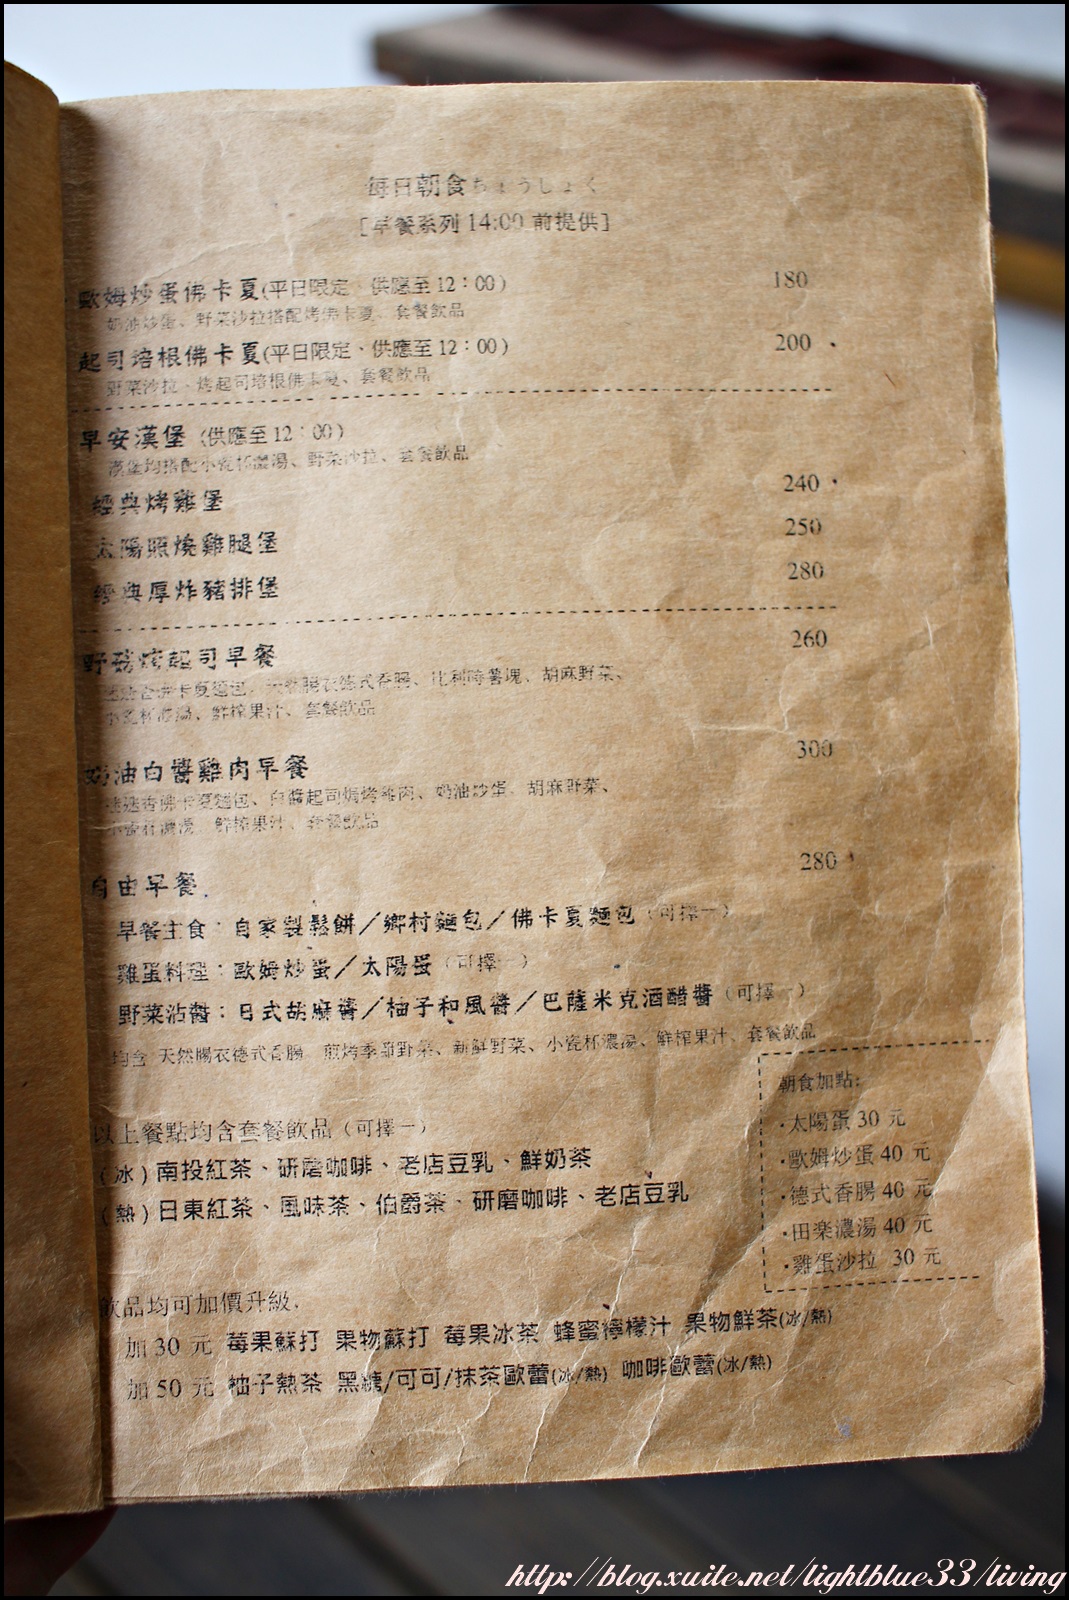 每日朝食ちょうしょく
[早餐系列 14:00 前提供]
歐姆炒蛋佛卡夏(平日限定、供應至12:00) 180
奶油炒蛋、野菜沙拉搭配烤佛卡夏、套餐飲品
起司培根佛卡夏(平日限定、供應至12:00) 200
野菜沙拉、烤起司培根佛卡夏、套餐飲品
早安漢堡 (供應至12:00)
漢堡均搭配小瓷杯濃湯、野菜沙拉、套餐飲品
經典烤雞堡 240
太陽照燒雞腿堡 250
經典厚炸豬排堡 280
野菇烤起司早餐 260
迷迭香佛卡夏麵包、天然腸衣德式香腸、比利時薯塊、胡麻野菜、
小瓷杯濃湯、鮮榨果汁、套餐飲品
奶油白醬雞肉早餐 300
迷迭香佛卡夏麵包、白醬起司焗烤雞肉、奶油炒蛋、胡麻野菜、
小瓷杯濃湯、鮮榨果汁、套餐飲品
自由早餐 280
早餐主食:自家製鬆餅/鄉村麵包/佛卡夏麵包(可擇一)
雞蛋料理:歐姆炒蛋/太陽蛋(可擇一)
野菜沾醬:日式胡麻醬/柚子和風醬/巴薩米克酒醋醬(可擇一)
均含 天然腸衣德式香腸、煎烤季節野菜、新鮮野菜、小瓷杯濃湯、鮮榨果汁、套餐飲品
以上餐點均含套餐飲品(可擇一)
(冰)南投紅茶、研磨咖啡、老店豆乳、鮮奶茶
(熱)日東紅茶、風味茶、伯爵茶、研磨咖啡、老店豆乳
朝食加點:
·太陽蛋 30 元
·歐姆炒蛋 40 元
·德式香腸 40 元
·田楽濃湯 40 元
·雞蛋沙拉 30 元
飲品均可加價升級.
加 30 元 莓果蘇打 果物蘇打 莓果冰茶 蜂蜜檸檬汁 果物鮮茶(冰/熱)
加 50 元 柚子熱茶 黑糖/可可/抹茶歐蕾(冰/熱) 咖啡歐蕾(冰/熱)
http://blog.xuite.net/lightblue33/living